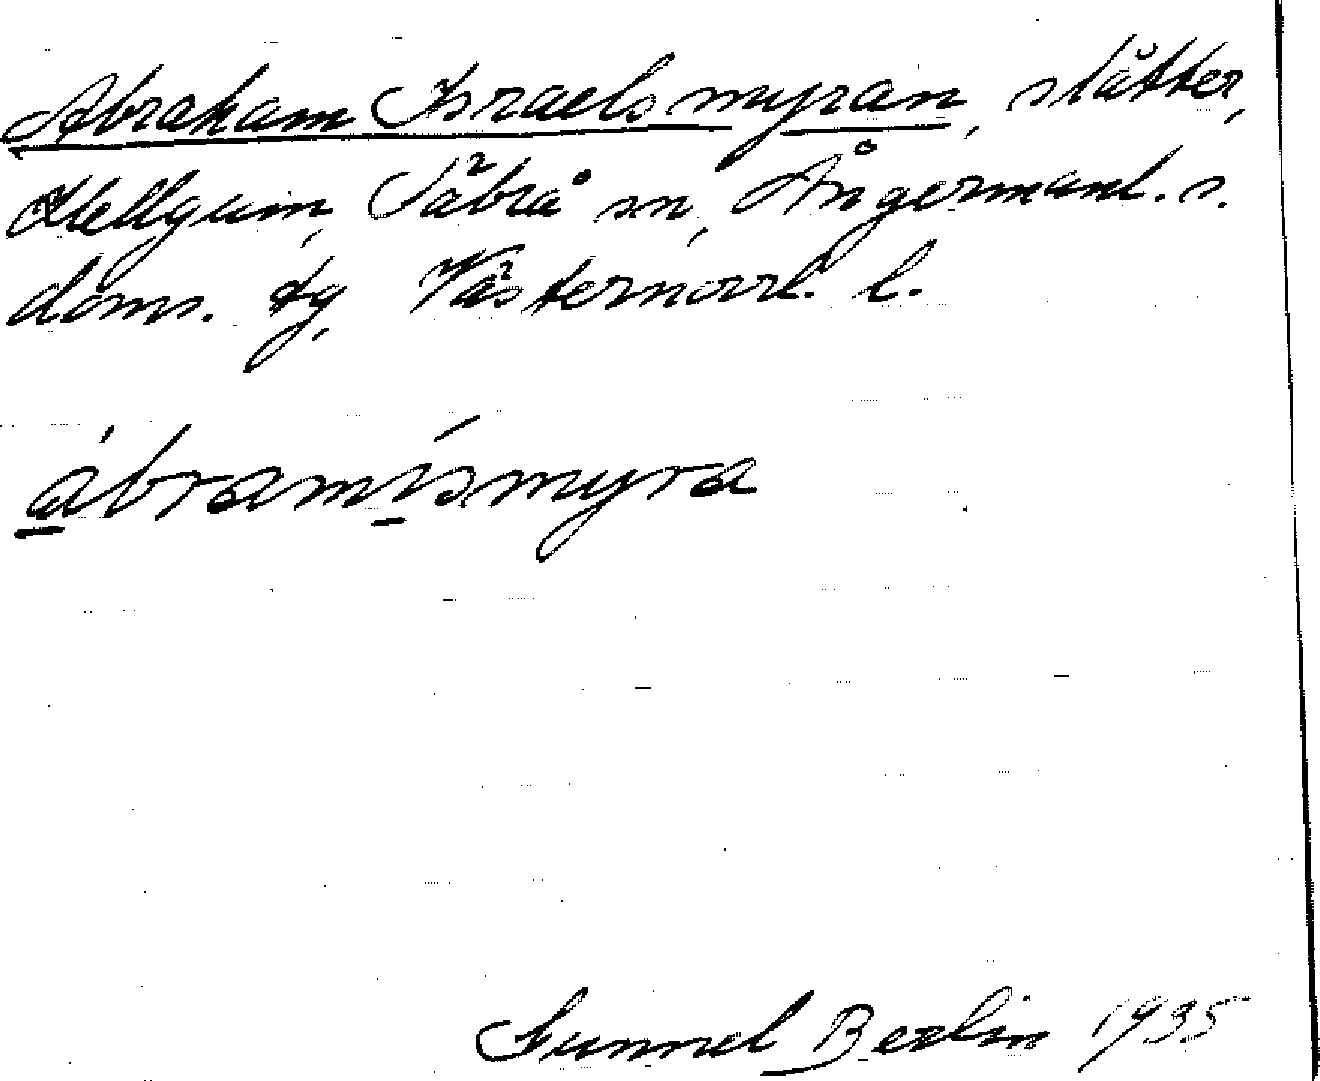 Abraham Israelsmyran, slåtter,
Hellgum, Säbrå sn, Ångermanl. s.
doms. tg, Västernorrl. l.
ábramísmyra
Gunnel Berlin 1935